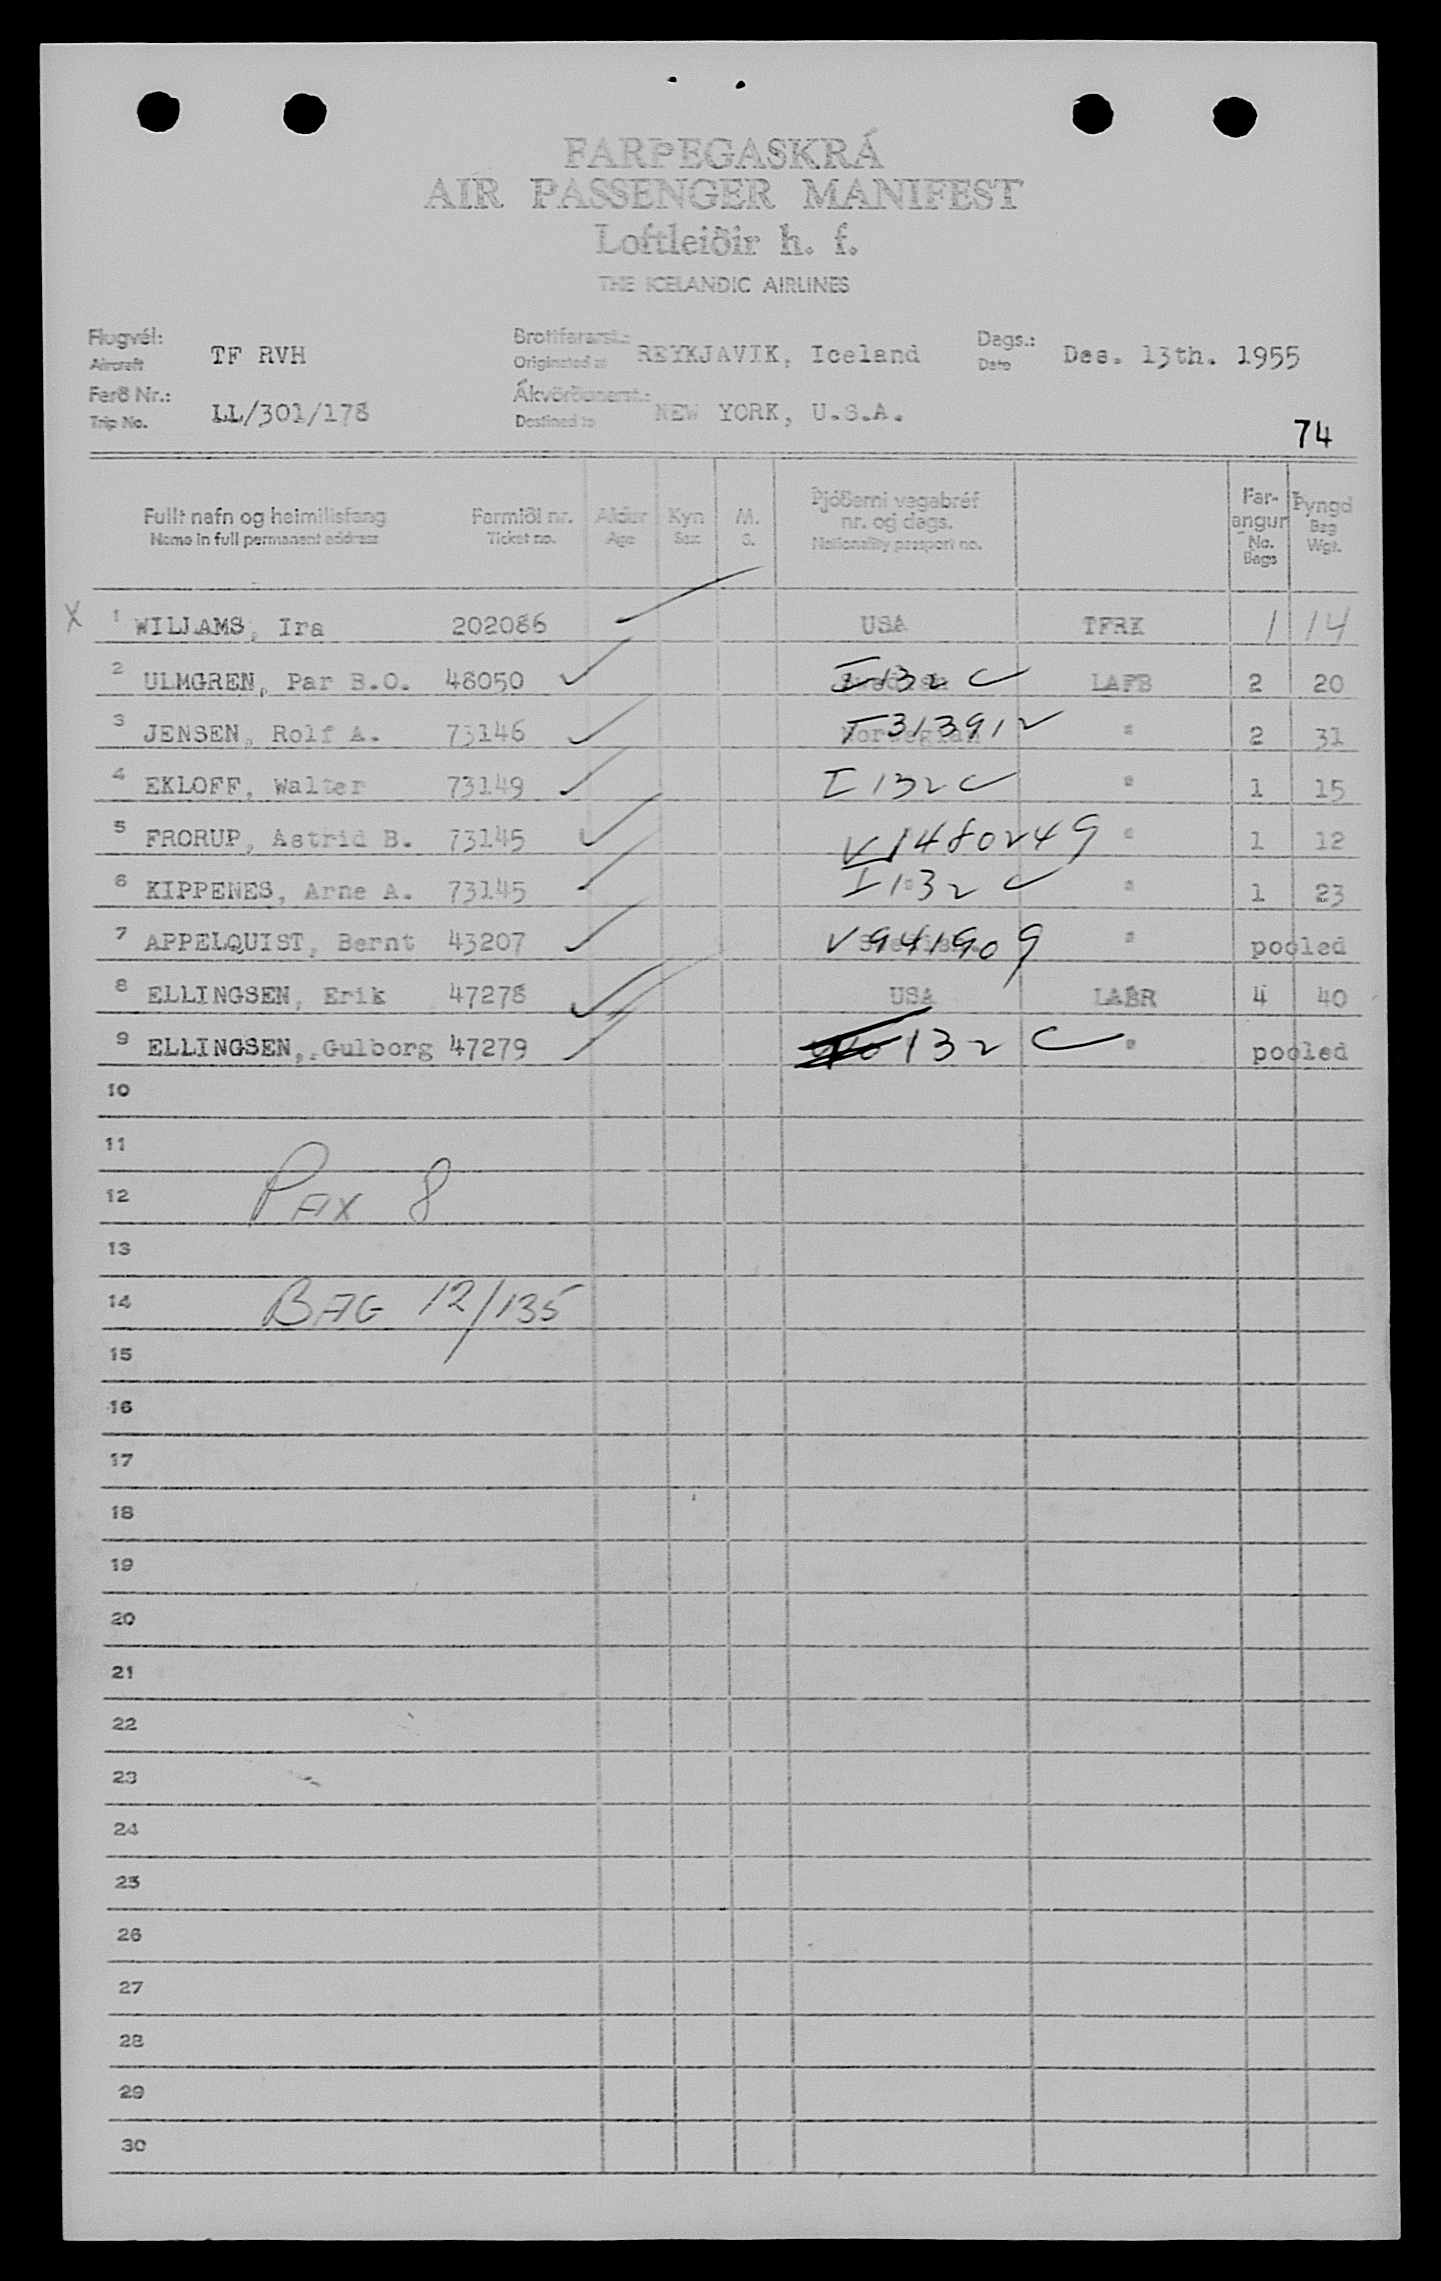 FARÞEGASKRÁ
AIR PASSENGER MANIFEST
Loftleiðir h. f.
THE ICELANDIC AIRLINES
Flugvél: TF RVH Brottfararst.: REYKJAVIK, Iceland Dags.: Des. 13th. 1955
Aircraft Originated at Date
Ferð Nr.: LL/301/178 Ákvörðunarst.: NEW YORK, U.S.A.
Trip No. Destined to
74
Fullt nafn og heimilisfang Farmiði nr. Aldur Kyn M. Þjóðerni vegabréf nr. og dags. Far-angur Þyngd
Name in full permanent address Ticket no. Age Sex Nationality passport no. No. Bags Bag Wgt.
X 1 WILLAMS, Ira 202086 USA TFRK 1 14
2 ULMGREN, Par B.O. 48050 I 132 C LAFB 2 20
3 JENSEN, Rolf A. 73146 Norwegian " 2 31
4 EKLOFF, Walter 73149 I 132 C " 1 15
5 FRORUP, Astrid B. 73145 V1480249 " 1 12
6 KIPPENES, Arne A. 73145 I 132 C " 1 23
7 APPELQUIST, Bernt 43207 V941909 " pooled
8 ELLINGSEN, Erik 47278 USA LABR 4 40
9 ELLINGSEN, Gulborg 47279 132 C " pooled
10
11
12 PAX 8
13
14 BAG 12/135
15
16
17
18
19
20
21
22
23
24
25
26
27
28
29
30